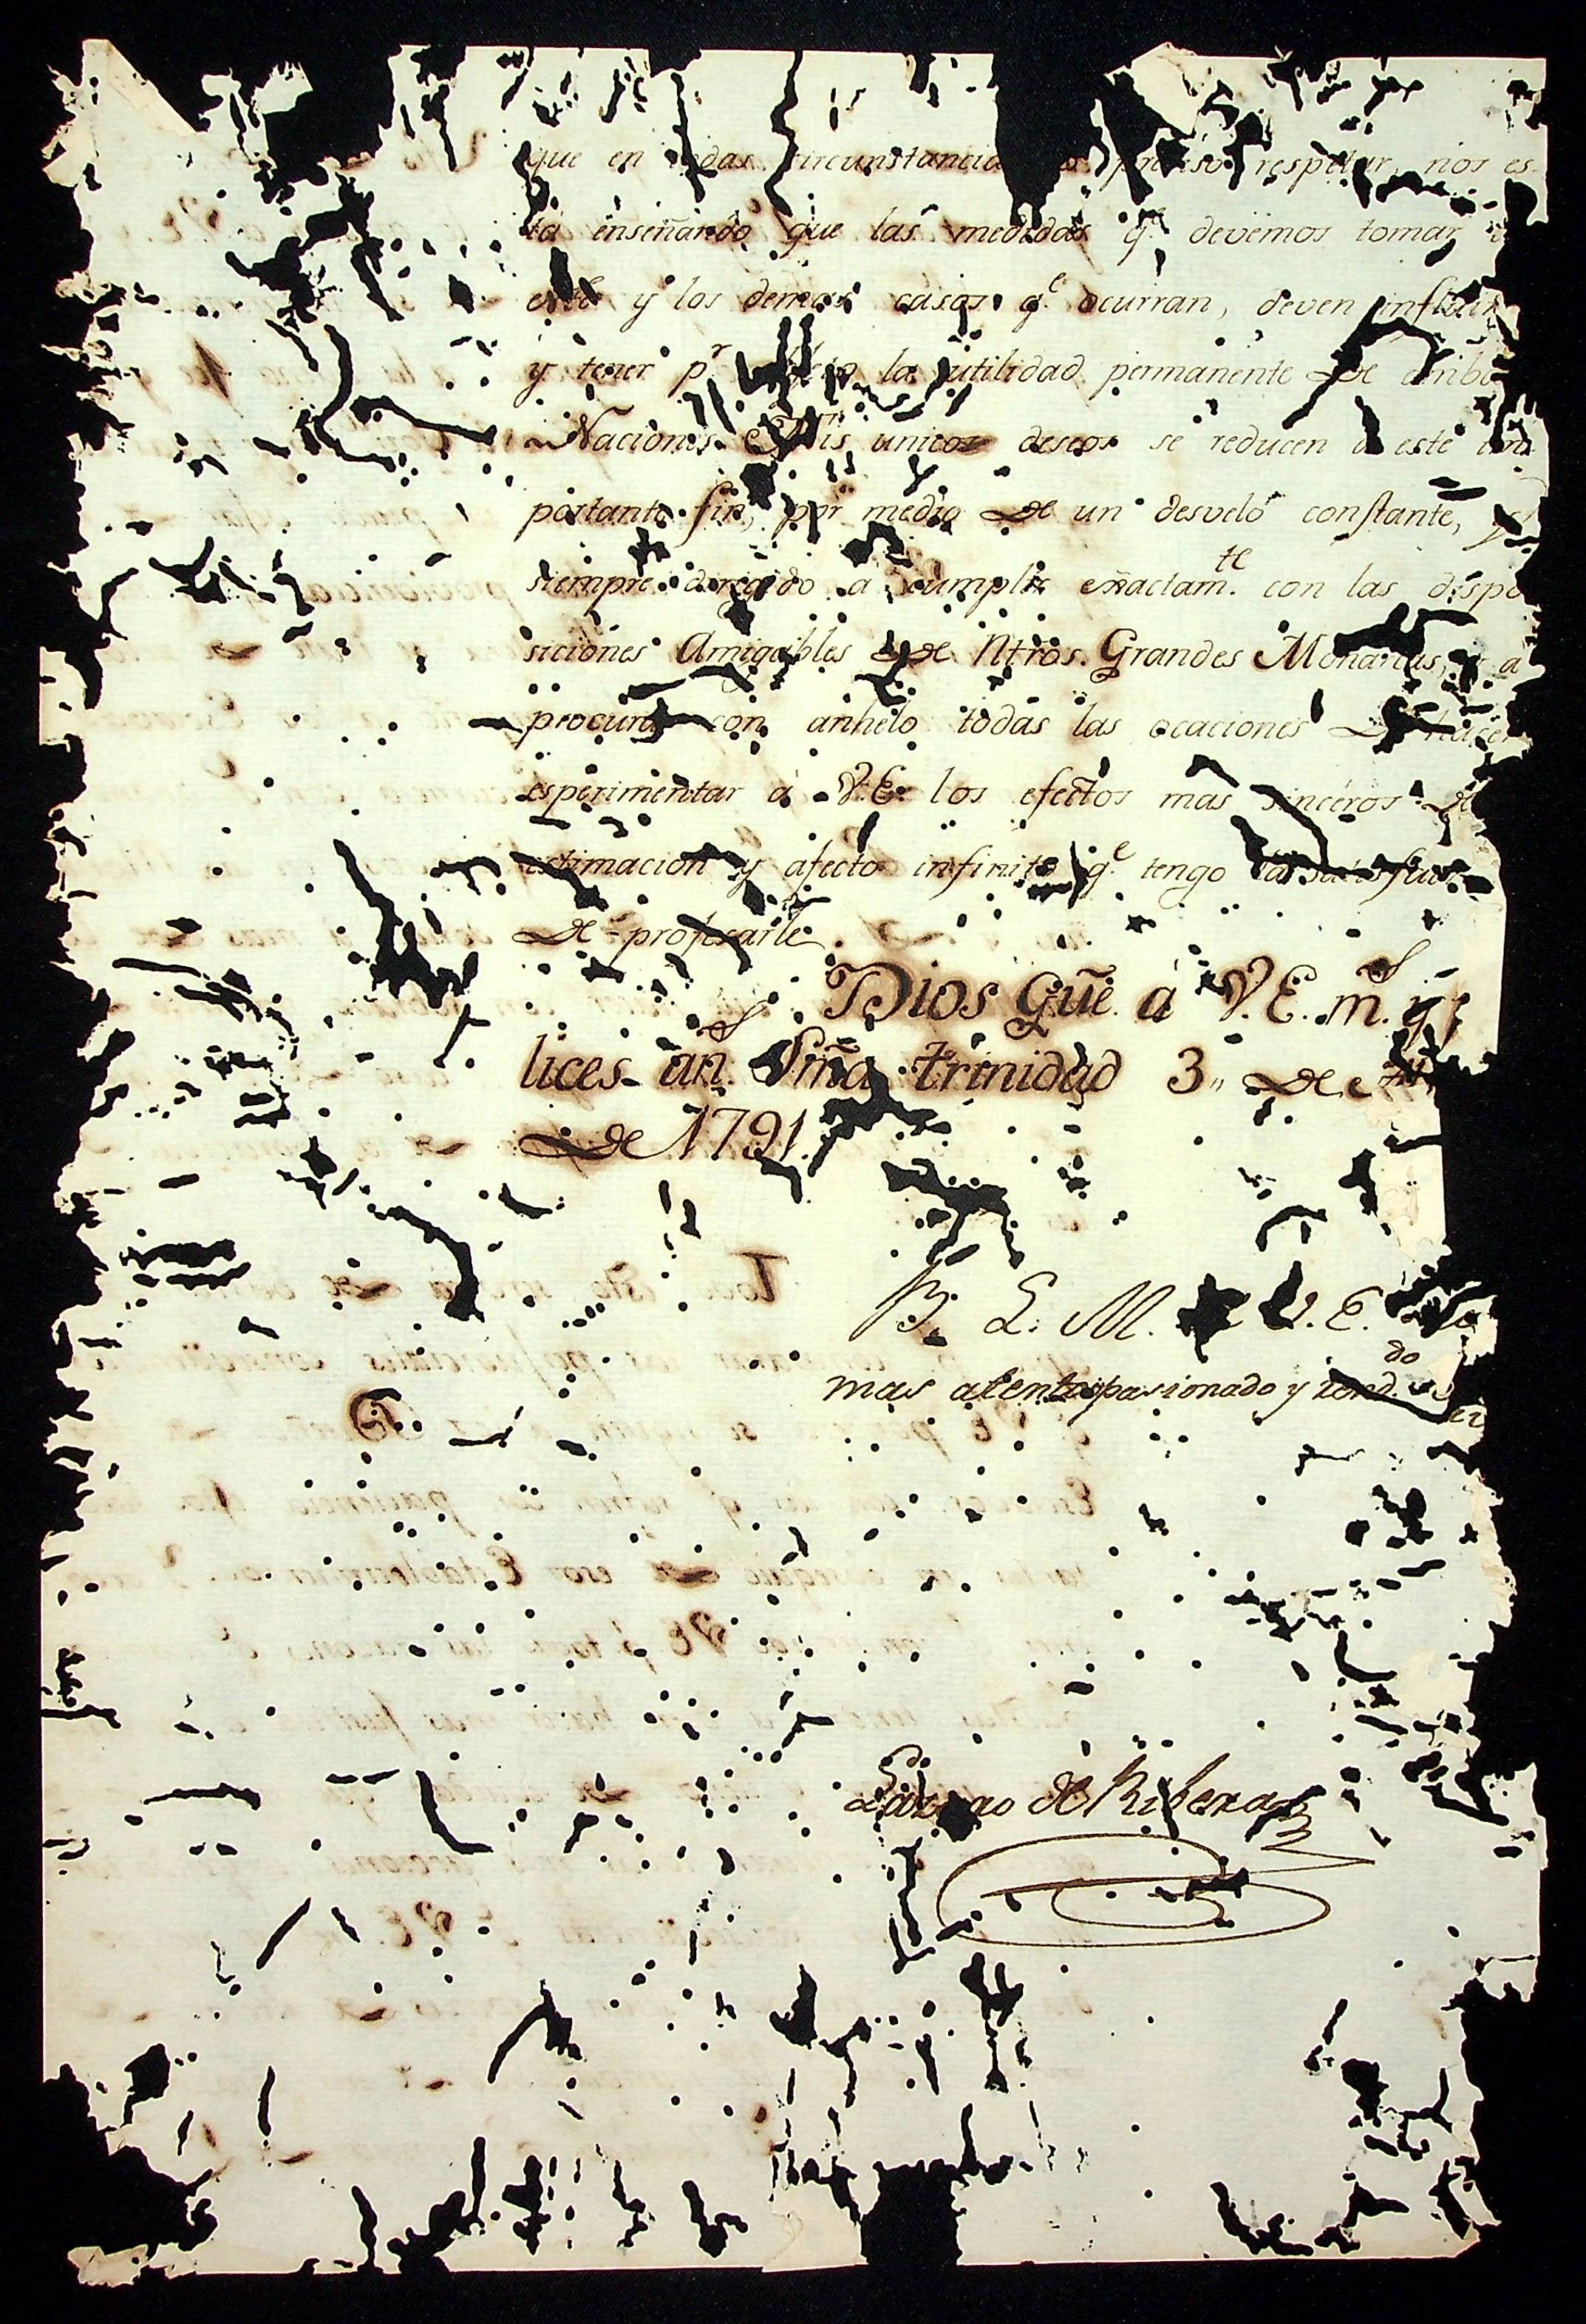 que en todas circunstancias es preciso respetar, nos es-
ta enseñando que las medidas q.e devemos tomar
este y los demas casos q.e ocurran, deven influir
y tener p.r objeto la utilidad permanente de ambas
Naciones. Mis unicos deseos se reducen a este im
portante fin, por medio de un desvelo constante, y
siempre dirigido a cumplir exactam.te con las dispo
siciones Amigables de Ntros. Grandes Monarcas, y a
procurar con anhelo todas las ocaciones de hacer
esperimentar a V.E. los efectos mas sinceros de
estimacion y afecto infinito q.e tengo la satisfac
de profesarle.
Dios gũe. a V.E. m.s
lices añ.s Sma trinidad 3,, de
de 1791.
B. L. M. V. E.
mas atento apasionado y rend.do
Lazaro de Ribera